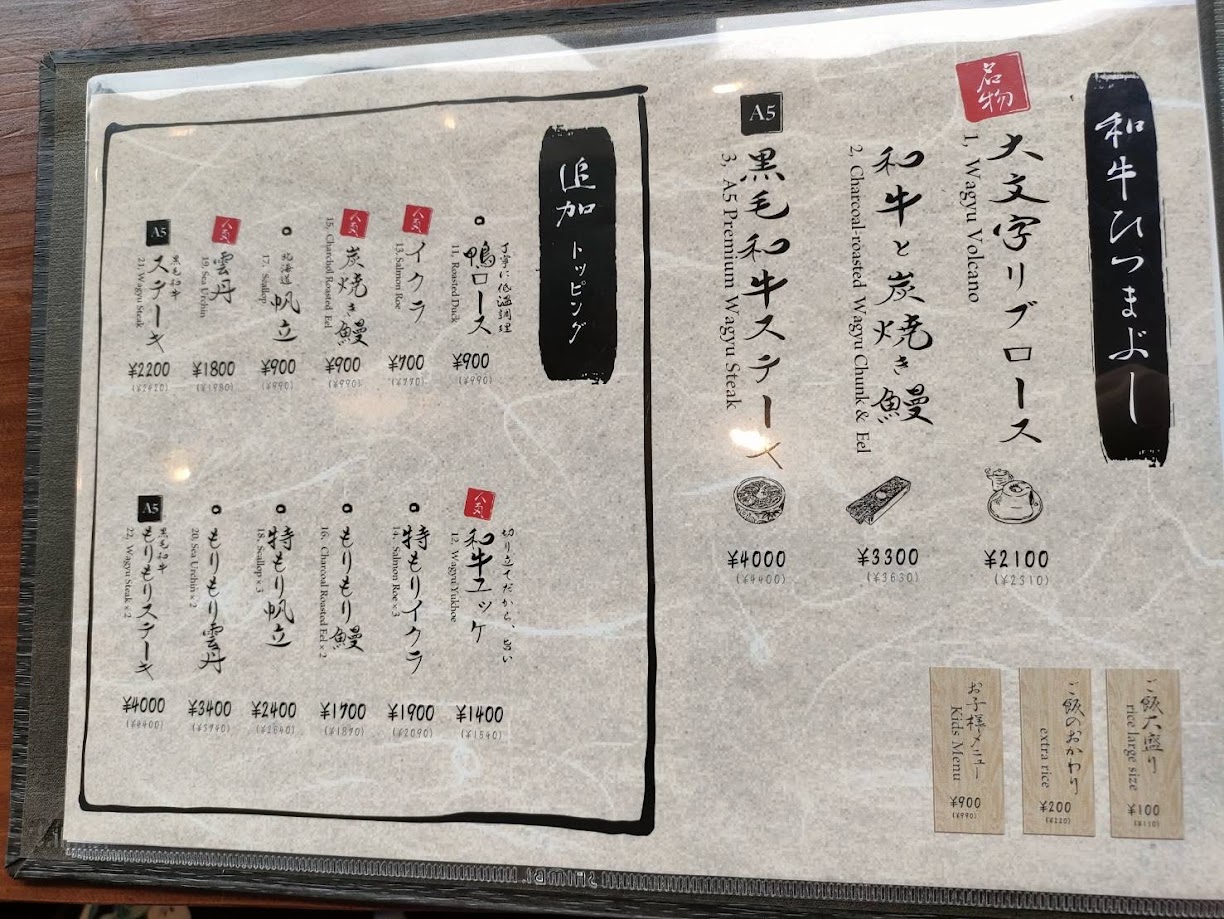 和牛ひつまぶし
名物
大文字リブロース
1, Wagyu Volcano
¥2100
(¥2310)
和牛と炭焼き鰻
2, Charcoal-roasted Wagyu Chunk & Eel
¥3300
(¥3630)
A5
黒毛和牛ステーキ
3, A5 Premium Wagyu Steak
¥4000
(¥4400)
ご飯大盛り
rice large size
¥100
(¥110)
ご飯のおかわり
extra rice
¥200
(¥220)
お子様メニュー
Kids Menu
¥900
(¥990)
追加トッピング
丁寧に低温調理
鴨ロース
11, Roasted Duck
¥900
(¥990)
人気
イクラ
13, Salmon Roe
¥700
(¥770)
人気
炭焼き鰻
15, Charcoal Roasted Eel
¥900
(¥990)
北海道
帆立
17, Scallop
¥900
(¥990)
人気
雲丹
19, Sea Urchin
¥1800
(¥1980)
A5
黒毛和牛
ステーキ
21, Wagyu Steak
¥2200
(¥2420)
切り立てだから、旨い
人気
和牛ユッケ
12, Wagyu Yukhoe
¥1400
(¥1540)
特もりイクラ
14, Salmon Roe × 3
¥1900
(¥2090)
もりもり鰻
16, Charcoal Roasted Eel × 2
¥1700
(¥1870)
特もり帆立
18, Scallop × 3
¥2400
(¥2640)
もりもり雲丹
20, Sea Urchin × 2
¥3400
(¥3740)
A5
黒毛和牛
もりもりステーキ
22, Wagyu Steak × 2
¥4000
(¥4400)